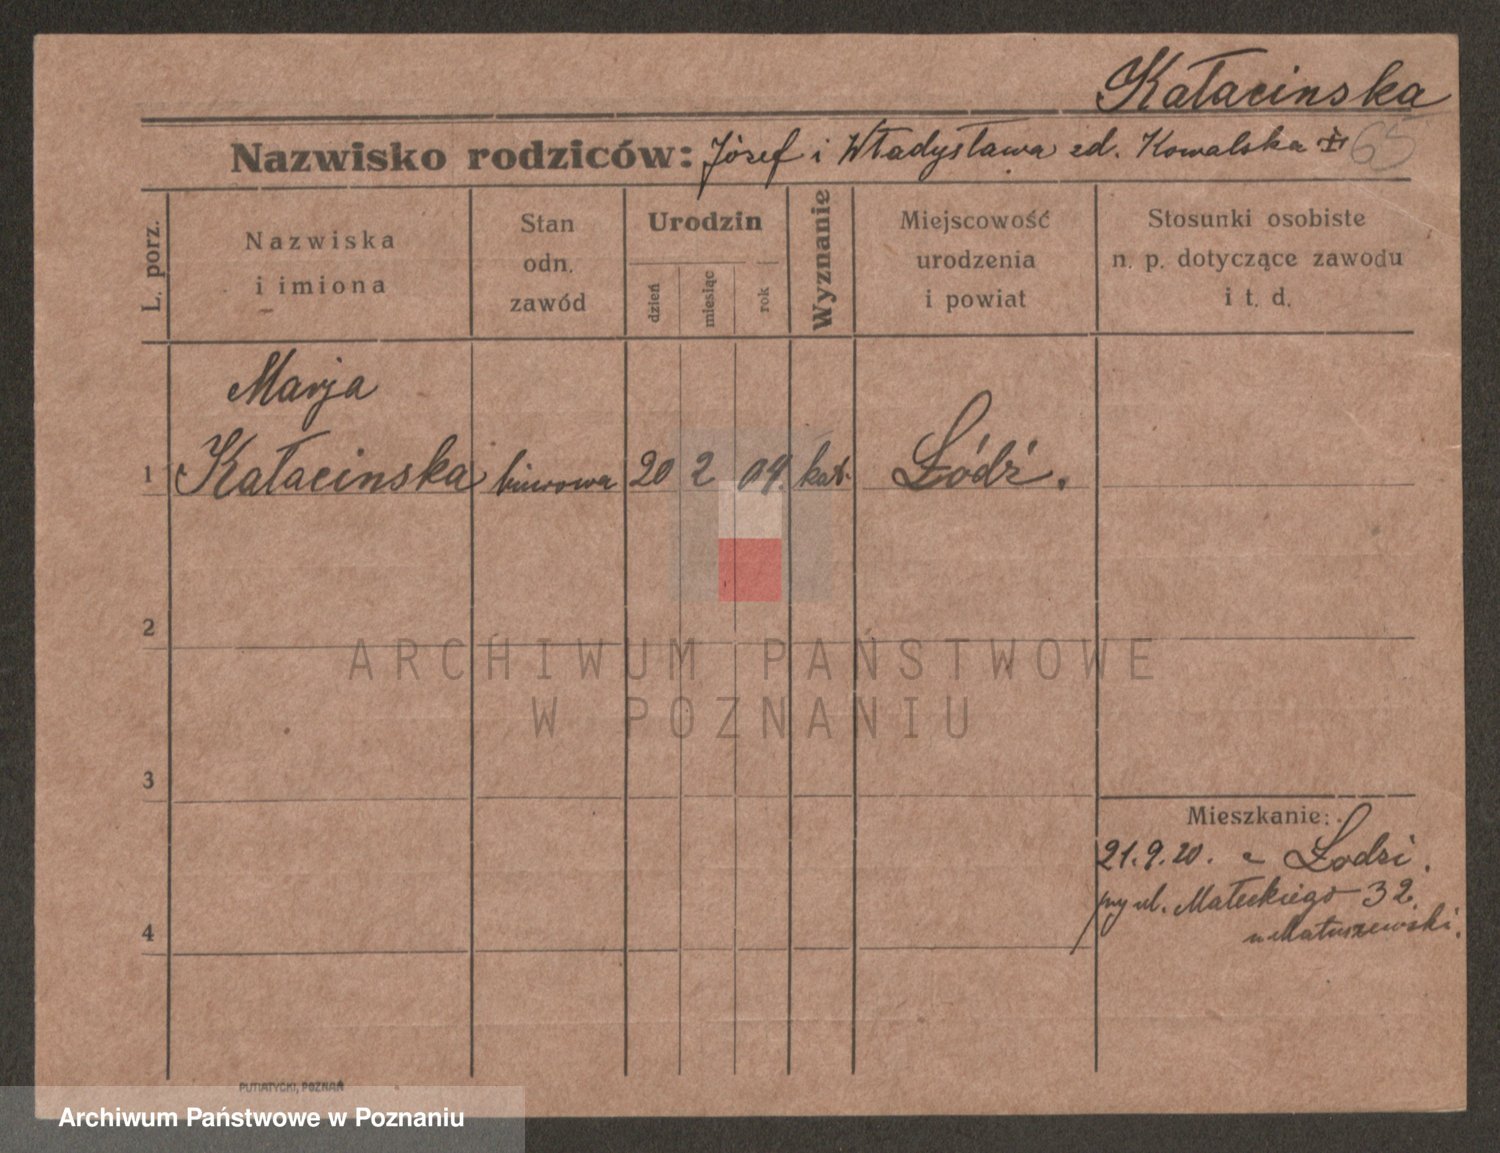 Kałacinska
Nazwisko rodziców: Józef i Władysława zd. Kowalska
65
L. porz.
Nazwiska
i imiona
Stan
odn.
zawód
Urodzin
dzień
miesiąc
rok
Wyznanie
Miejscowość
urodzenia
i powiat
Stosunki osobiste
n. p. dotyczące zawodu
i t. d.
Marja
1 Kałacinska biurowa 20 2 04. kat. Łódź.
2
ARCHIWUM PAŃSTWOWE
W POZNANIU
3
Mieszkanie:
21.9.20. z Łodzi.
przy ul. Małeckiego 32.
4
u Matuszewski.
PUTIATYCKI, POZNAŃ
Archiwum Państwowe w Poznaniu